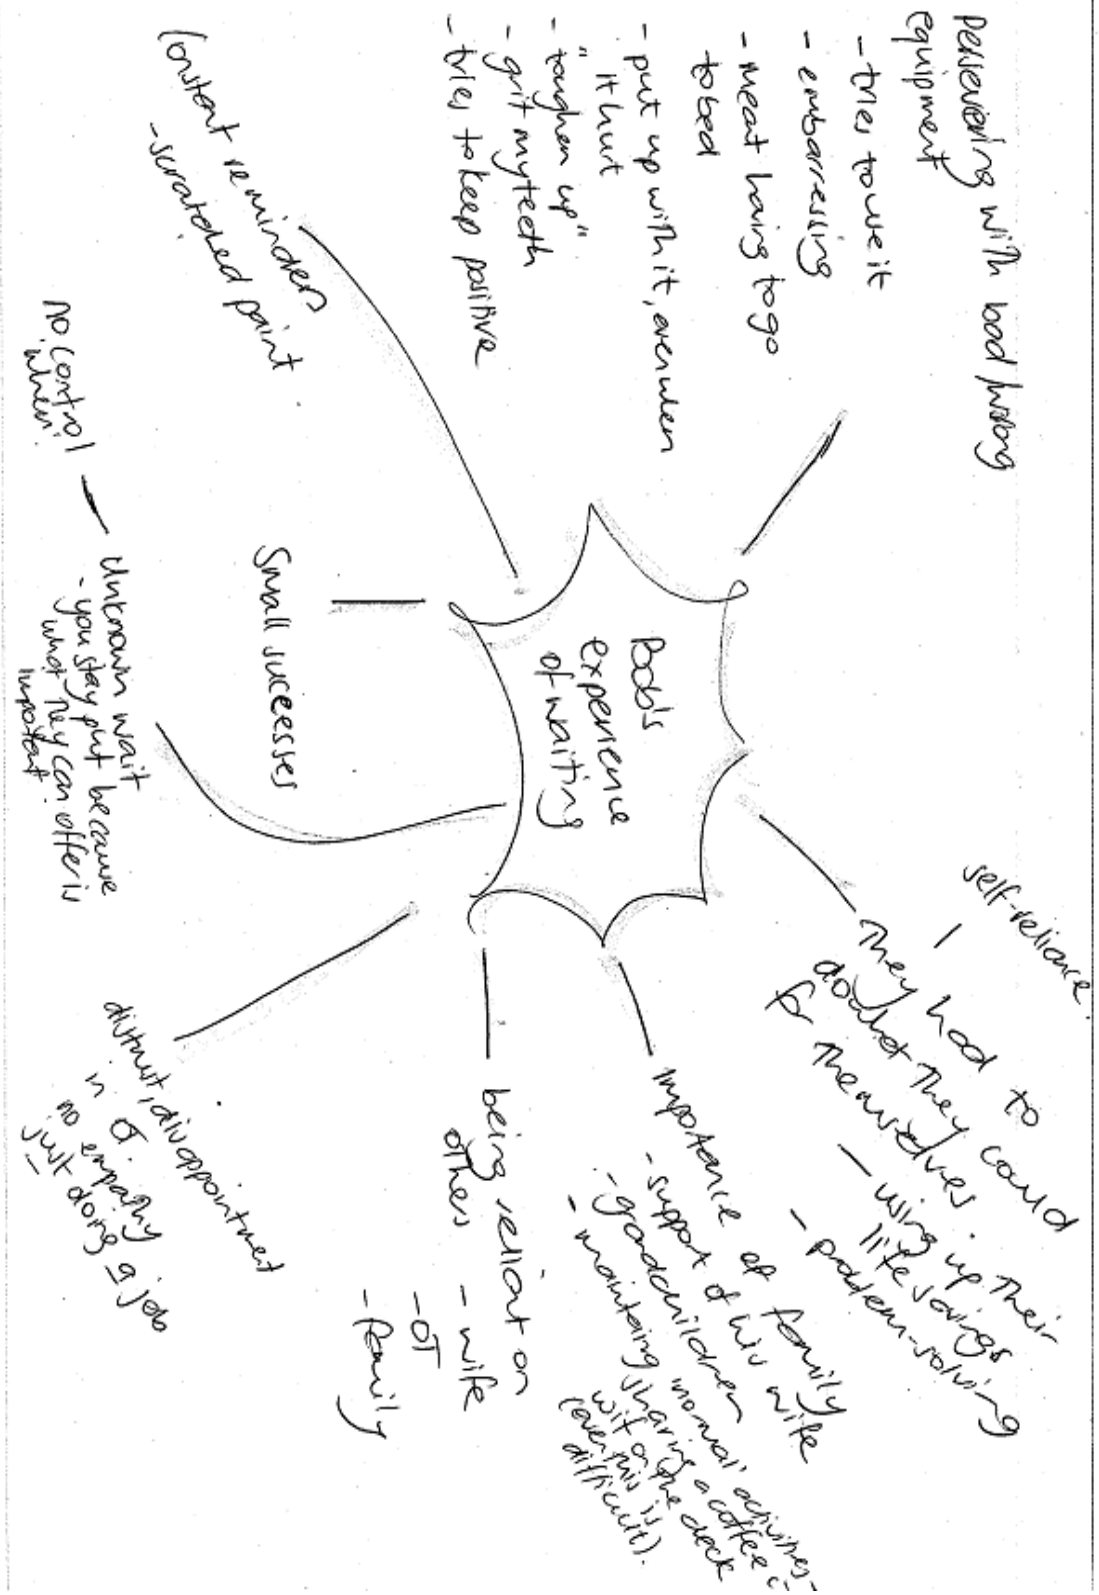 Bob's
experience
of waiting
persevering with bad/wrong
equipment
- tries to use it
- embarressing
- meant having to go
to bed
- put up with it, even when
it hurt
- "toughen up"
- grit my teeth
- tries to keep positive
Constant reminders
- scratched paint
Small successes
no control
when
Unknown wait
- you stay put because
what they can offer is
important.
distrust, disappointment
in OT.
no empathy
just doing a job
being reliant on
others
- wife
- OT
- family
Importance of family
- support of his wife
- grandchildren
- maintaing 'normal' activities -
sharing a coffee
on the deck
(even this is
difficult).
self-reliance.
They had to
do what they could
for themselves.
- using up their
life savings
- problem-solving